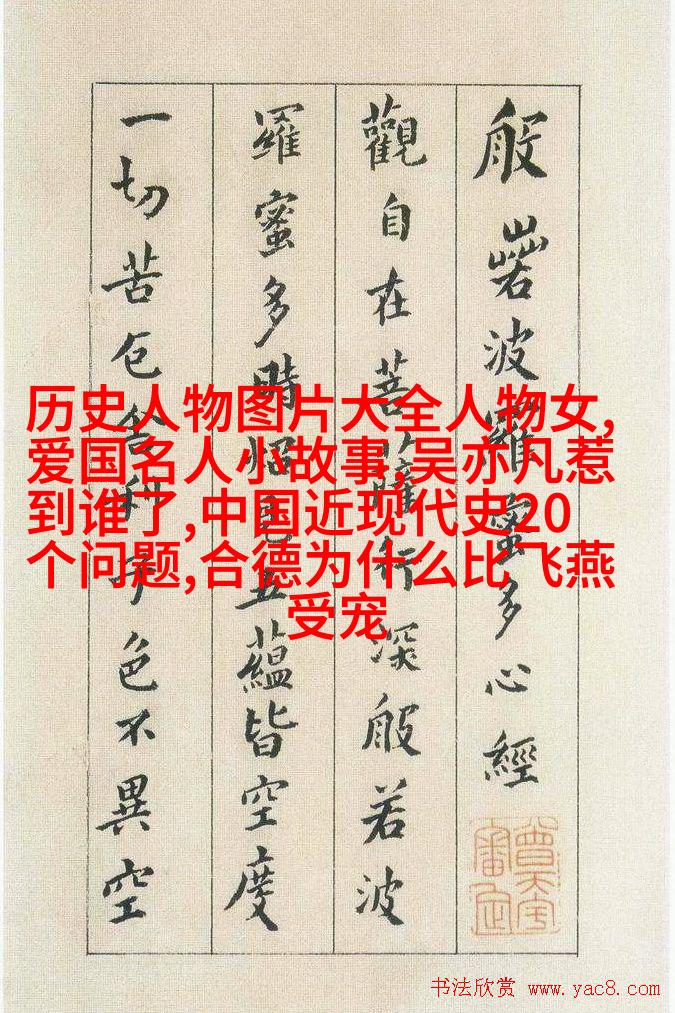 般若波羅蜜多心經
觀自在菩薩行深般若波
羅蜜多時照見五蘊皆空度
一切苦厄舍利子色不異空
历史人物图片大全人物女,
爱国名人小故事,吴亦凡惹
到谁了,中国近现代史20
个问题,合德为什么比飞燕
受宠
书法欣赏 www.yac8.com